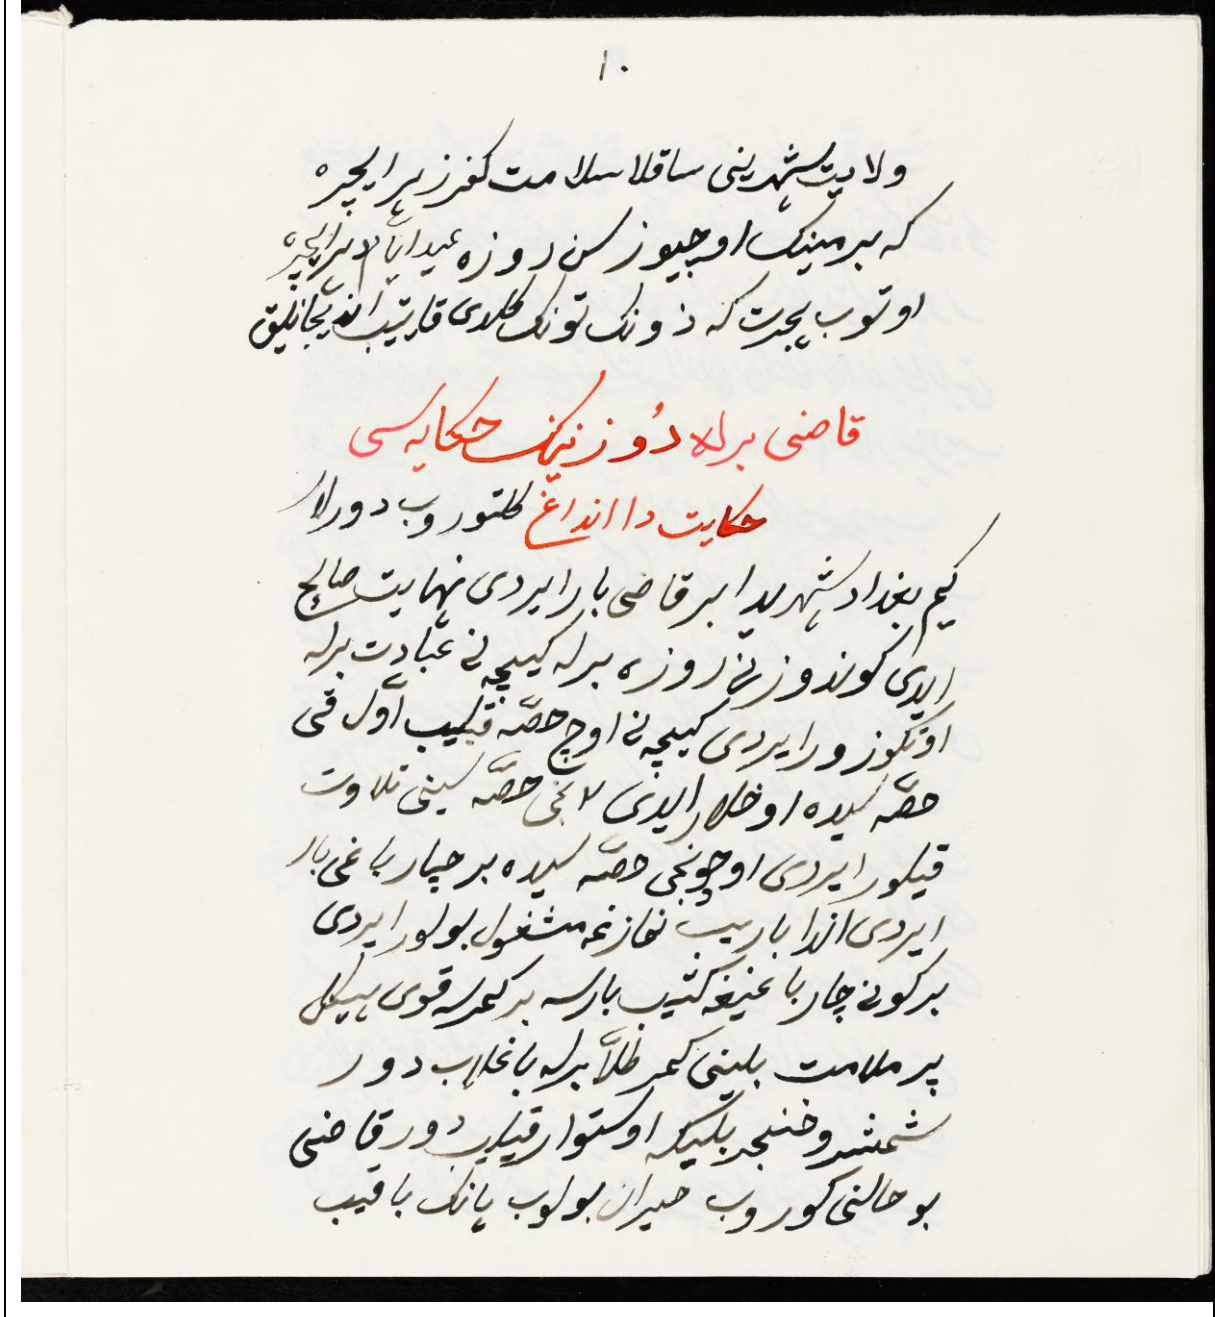 ۱۰
ولایت شهرینی ساقلا سلامت کفر زهر ایچره
که بر مینک اوچیوز سن روزه عید ایام
اوتوب هجرت که ذونک تونک کلدی قایتیب اندیجانلیق
قاضی برله دُوزنینک حکایه سی
حکایت دا انداغ کلتوروب دورلار
کیم بغداد شهریدا بر قاضی بار ایردی نهایت صالح
ایدی کوندوزنی روزه برله کیچه نی عبادت برله
اوتکوزور ایردی کیچه نی اوچ حصّه قیلیب اوّل قی
حصّه سیده اوخلار ایدی ۲ نجی حصّه سینی تلاوت
قیلور ایردی اوچونجی حصّه سیده بر چار باغی بار
ایردی اندا باریب نمازغه مشغول بولور ایردی
بر کونی چار باغیغه کیتیب بارسه بر کمرسه قوی هیکل
پر ملامت بلینی کمر طلّا برله باغلاب دور
شمشیر و خنجر بلیکه اوستوار قیلیب دور قاضی
بو حالنی کوروب حیران بولوب یانک باقیب